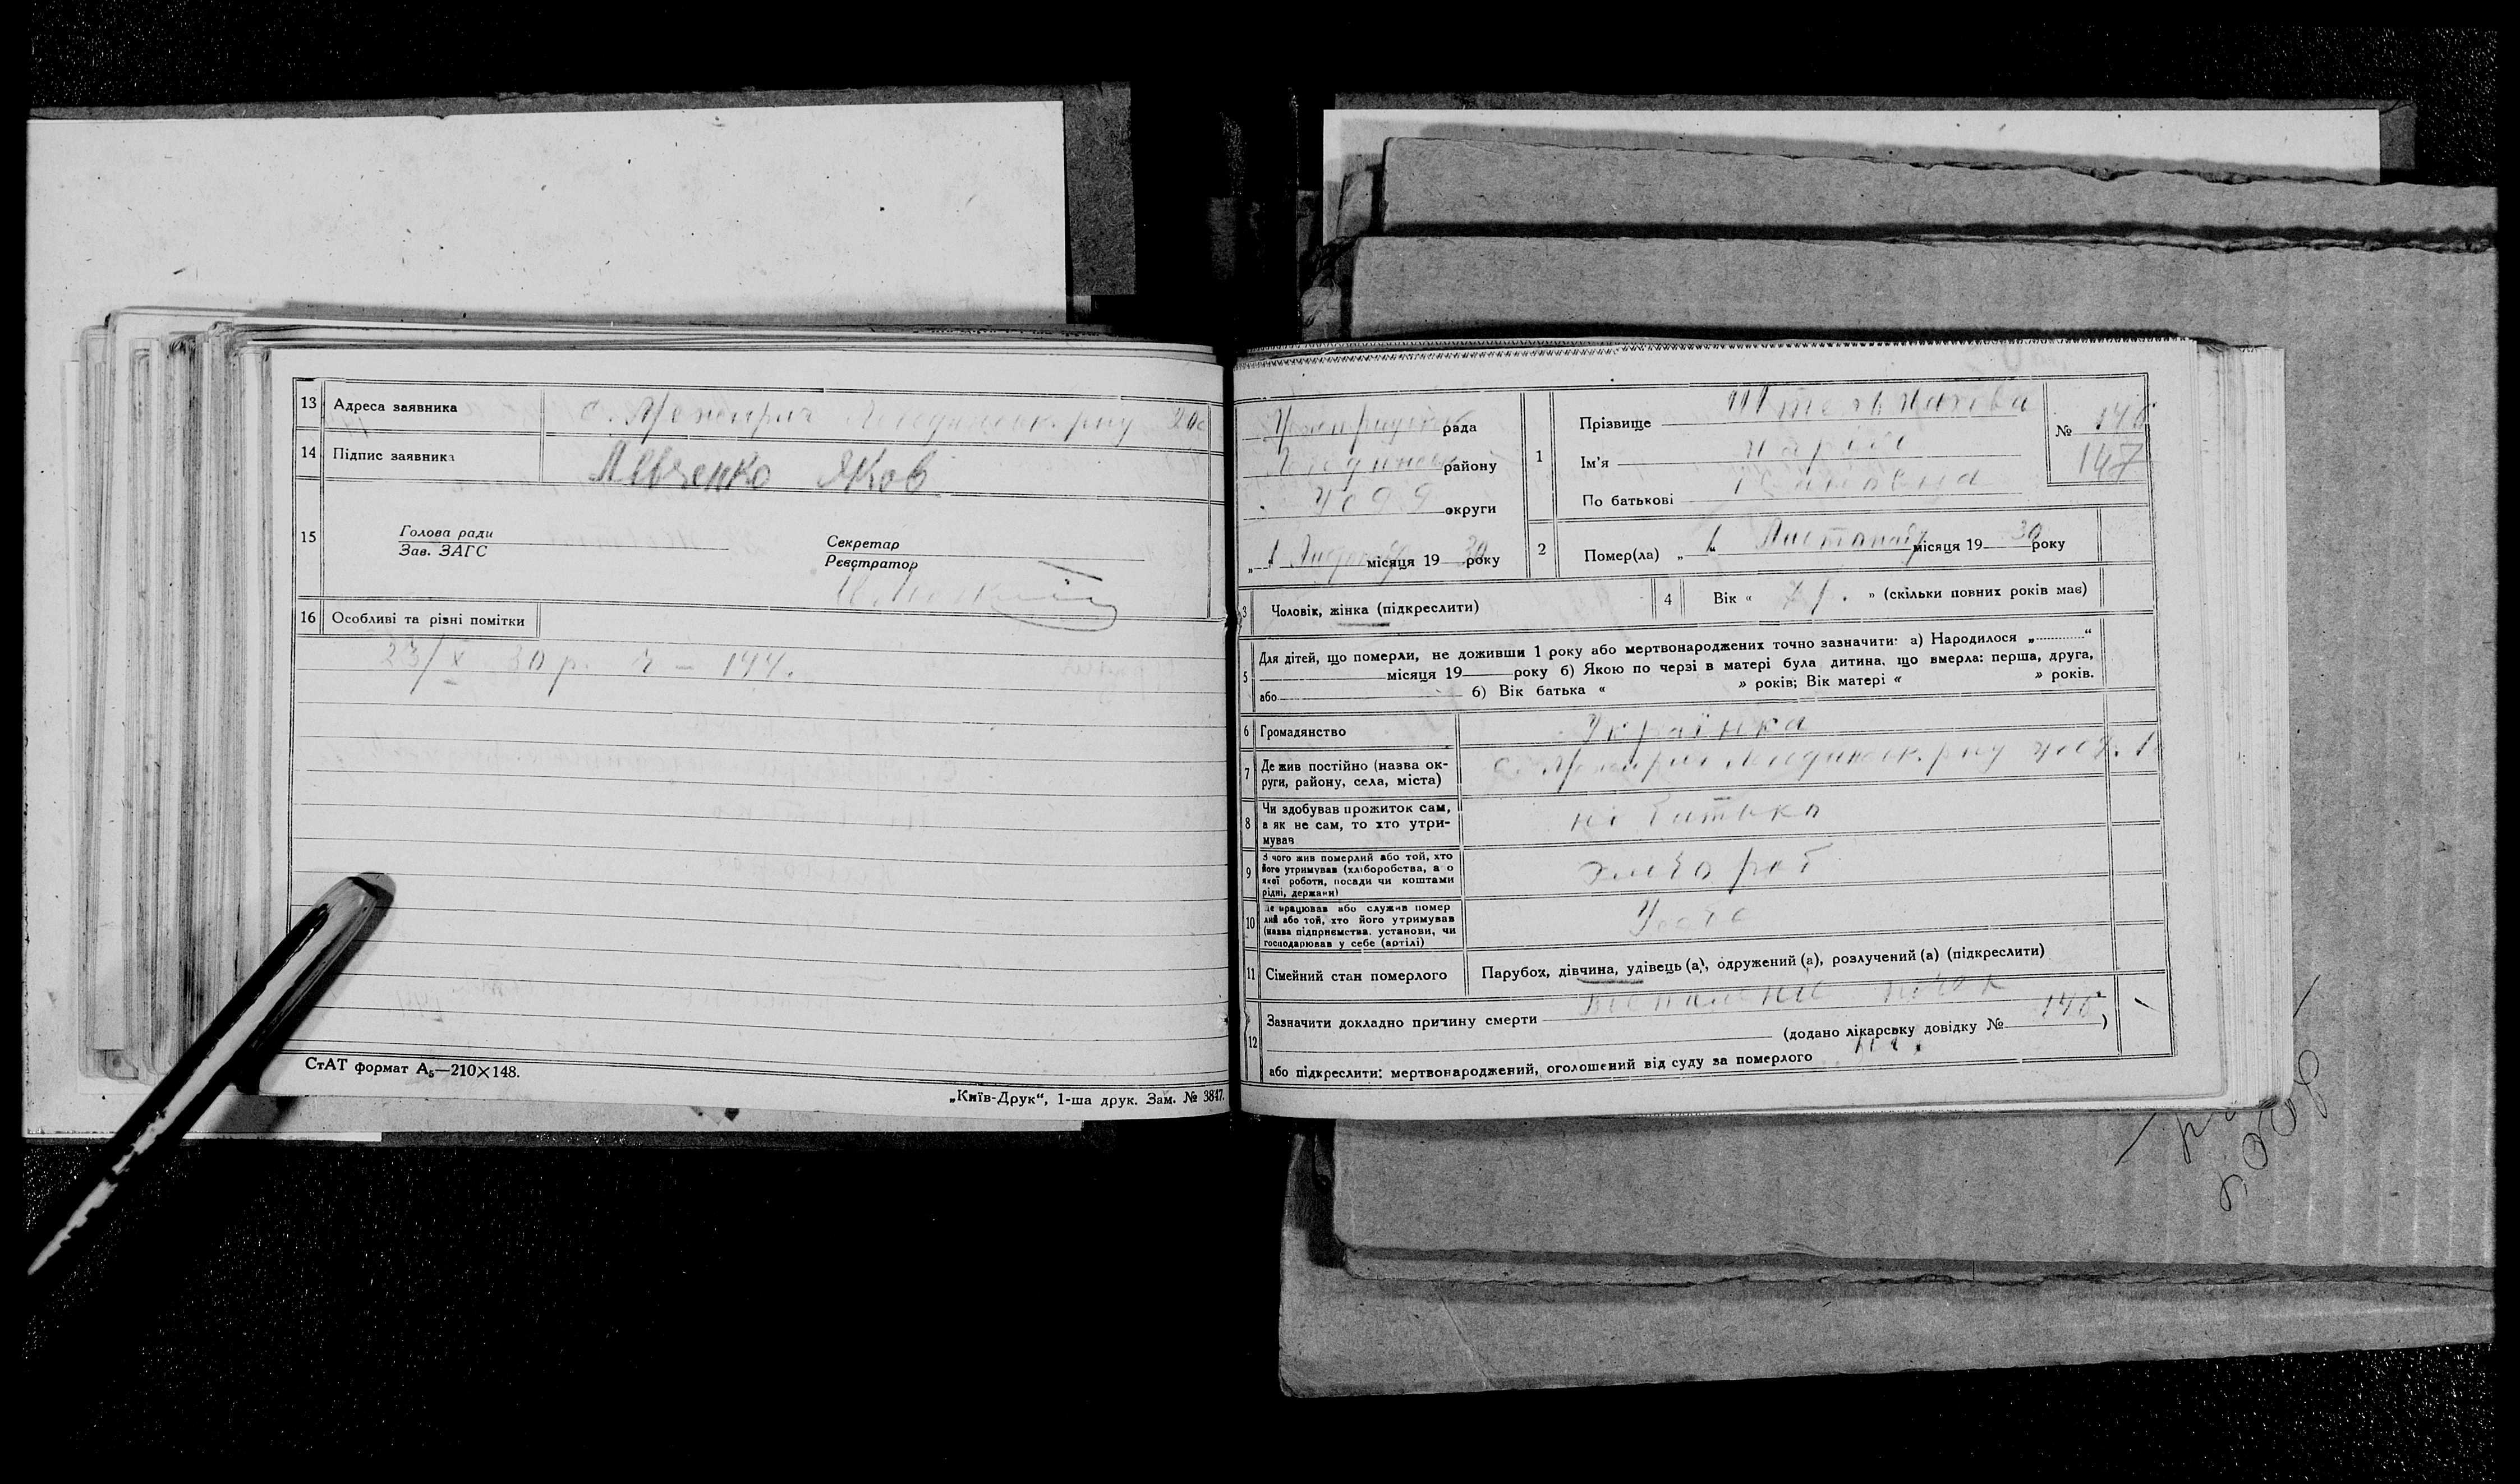 13 Адреса заявника с. Межирич Лебединськ. р-ну
14 Підпис заявника Левченко Яков
15 Голова ради
Зав. ЗАГС
Секретар
Реєстратор
16 Особливі та різні помітки
23/X 30 р. Ч – 144.
СтАТ формат А₅—210×148.
„Київ-Друк“, 1-ша друк. Зам. № 3847.
рада
Лебединськ району
округи
„1“ Листопаду місяця 1930 року
1 Прізвище
Ім'я Марія
По батькові
№ 146
147
2 Помер(ла) „1“ Листопаду місяця 1930 року
3 Чоловік, жінка (підкреслити)
4 Вік « » (скільки повних років має)
5 Для дітей, що померли, не доживши 1 року або мертвонароджених точно зазначити: а) Народилося „ “
місяця 19 року б) Якою по черзі в матері була дитина, що вмерла: перша, друга,
або б) Вік батька « » років; Вік матері « » років.
6 Громадянство Українка
7 Де жив постійно (назва ок-
руги, району, села, міста) с. Межирич Лебединськ. р-ну
8 Чи здобував прожиток сам,
а як не сам, то хто утри-
мував
9 З чого жив померлий або той, хто
його утримував (хліборобства, а о
якої роботи, посади чи коштами
рідні, держави)
10 Де працював або служив помер
лий або той, хто його утримував
(назва підприємства, установи, чи
господарював у себе (артілі)
11 Сімейний стан померлого Парубох, дівчина, удівець (а), одружений (а), розлучений (а) (підкреслити)
12 Зазначити докладно причину смерти
(додано лікарську довідку № 146)
або підкреслити: мертвонароджений, оголошений від суду за померлого